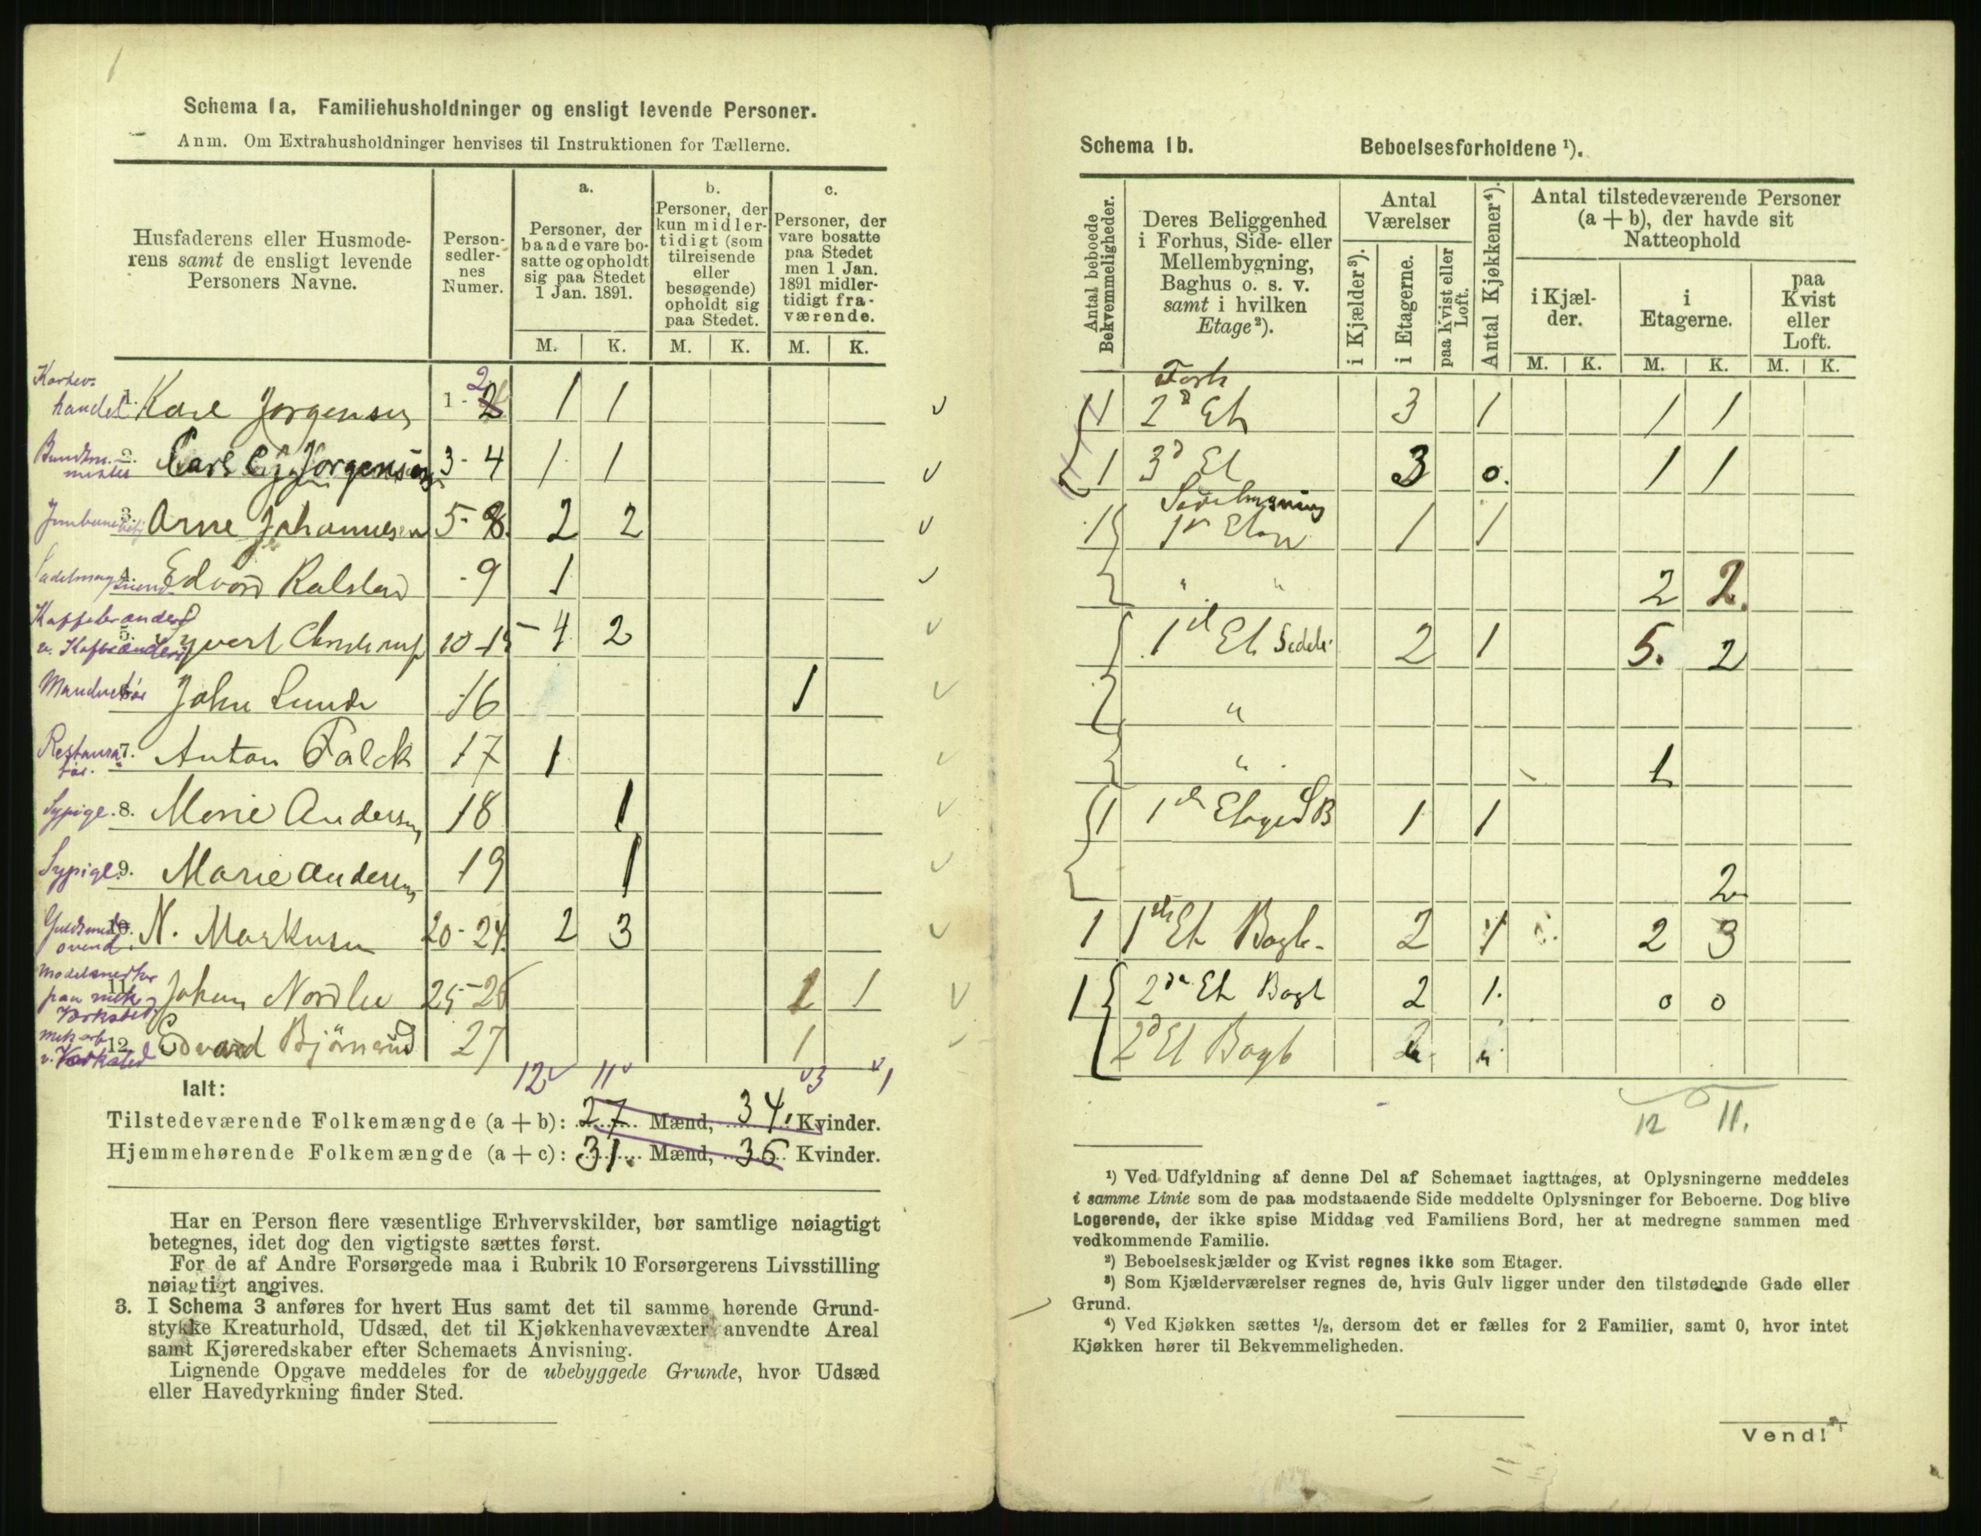 1
Schema 1a. Familiehusholdninger og ensligt levende Personer.
Anm. Om Extrahusholdninger henvises til Instruktionen for Tællerne.
Husfaderens eller Husmoderens samt de ensligt levende Personers Navne.
Personsedlernes Numer.
a. Personer, der baade vare bosatte og opholdt sig paa Stedet 1 Jan. 1891.
b. Personer, der kun midlertidigt (som tilreisende eller besøgende) opholdt sig paa Stedet.
c. Personer, der vare bosatte paa Stedet men 1 Jan. 1891 midlertidigt fraværende.
M. K. M. K. M. K.
1. Karl Jörgensen 1-2 1 1
2. Carl Jorgensen 3-4 1 1
3. Arne Johannesen 5-8. 2 2
4. Edvard Ralstad -9 1
5. Syvert 10-15 4 2
6. John Lunde -16 1
7. Restauratør. Anton Falck 17 1
8. Sypige. Marie Andersen 18 1
9. Sypige. Marie Andersen 19 1
10. N. Markusen 20-24. 2 3
11. Johan Nordlie 25-26 1 1
12. Edvard Bjørnerud 27 1
Ialt: 12 11 3 1
Tilstedeværende Folkemængde (a + b): 27 Mænd, 34. Kvinder.
Hjemmehørende Folkemængde (a + c): 31. Mænd, 36 Kvinder.
Har en Person flere væsentlige Erhvervskilder, bør samtlige nøiagtigt
betegnes, idet dog den vigtigste sættes først.
For de af Andre Forsørgede maa i Rubrik 10 Forsørgerens Livsstilling
nøiagtigt angives.
3. I Schema 3 anføres for hvert Hus samt det til samme hørende Grund-
stykke Kreaturhold, Udsæd, det til Kjøkkenhavevæxter anvendte Areal
samt Kjøreredskaber efter Schemaets Anvisning.
Lignende Opgave meddeles for de ubebyggede Grunde, hvor Udsæd
eller Havedyrkning finder Sted.
Schema 1b. Beboelsesforholdene ¹).
Antal beboede Bekvemmeligheder.
Deres Beliggenhed i Forhus, Side- eller Mellembygning, Baghus o. s. v. samt i hvilken Etage ²).
Antal Værelser
i Kjælder ³). i Etagerne. paa Kvist eller Loft.
Antal Kjøkkener ⁴).
Antal tilstedeværende Personer (a + b), der havde sit Natteophold
i Kjælder. i Etagerne. paa Kvist eller Loft.
M. K. M. K. M. K.
Forh
1 2d Et 3 1 1 1
1 3d Et 3 0. 1 1
Sidebygning
1 1 1
" " 2 2.
1 Et 2 1 5. 2
"
" 1
1 1 1
2
1 1 Et Bagb. 2 1 2 3
1 2 Et Bagb 2 1. 0 0
2d Et Bagb "
12 11.
¹) Ved Udfyldning af denne Del af Schemaet iagttages, at Oplysningerne meddeles
i samme Linie som de paa modstaaende Side meddelte Oplysninger for Beboerne. Dog blive
Logerende, der ikke spise Middag ved Familiens Bord, her at medregne sammen med
vedkommende Familie.
²) Beboelseskjælder og Kvist regnes ikke som Etager.
³) Som Kjælderværelser regnes de, hvis Gulv ligger under den tilstødende Gade eller
Grund.
⁴) Ved Kjøkken sættes ½, dersom det er fælles for 2 Familier, samt 0, hvor intet
Kjøkken hører til Bekvemmeligheden.
Vend!